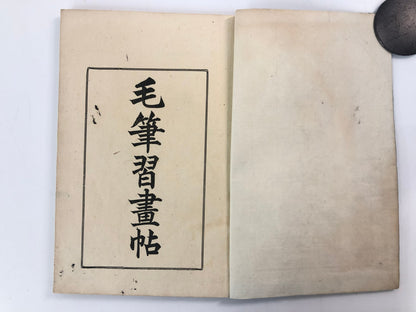 毛筆習畫帖